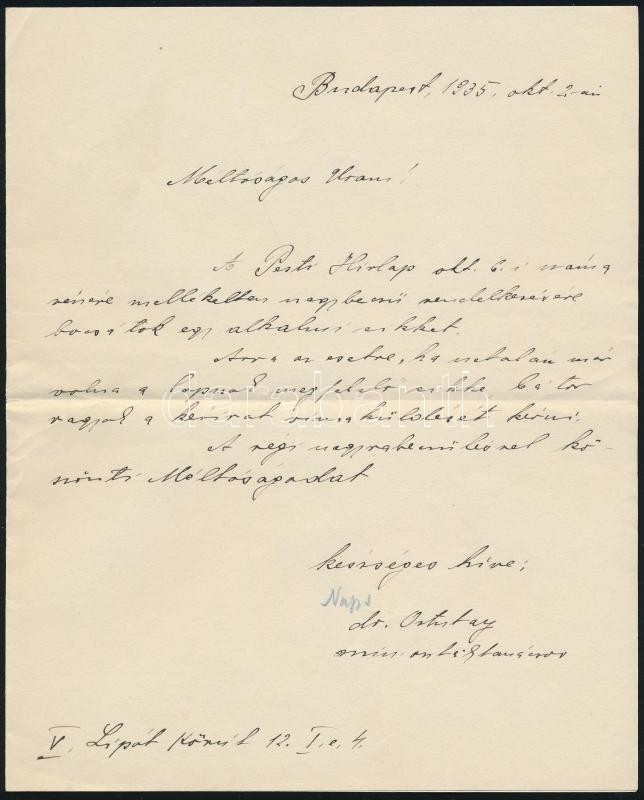 Budapest, 1935. okt. 2-án
Méltóságos Uram!
A Pesti Hirlap okt. 6.-i száma
részére mellékelten nagybecsű rendelkezésére
bocsátok egy alkalmi cikket.
Arra az esetre, ha netalán már
volna a lapnak megfelelő cikke, bátor
vagyok a kézirat visszaküldését kérni.
A régi nagyrabecsüléssel kö-
szönti Méltóságodat
készséges híve:
dr. Ortutay
min. osztálytanácsos
V. Lipót Körút 12. I. e. 4.
darabanth